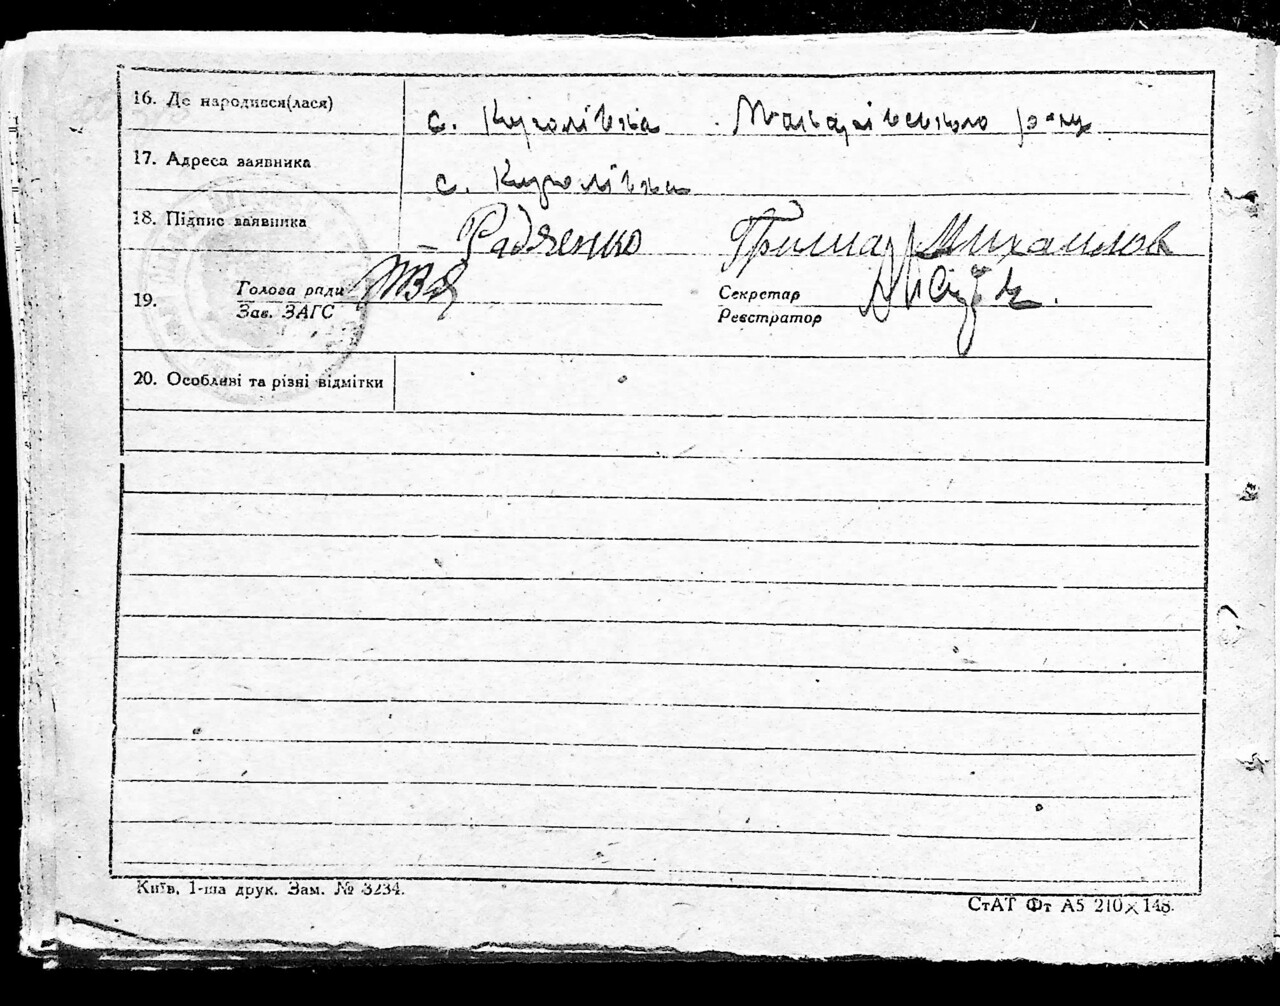 16. Де народився(лася) с. Королівка Макарівського р-ну
17. Адреса заявника с. Королівка
18. Підпис заявника – Радченко Гриша Михайлов
Голова ради
19. Зав. ЗАГС
Секретар
Реєстратор
20. Особливі та різні відмітки
Київ, 1-ша друк. Зам. № 3234.
СтАТ Фт А5 210×148.